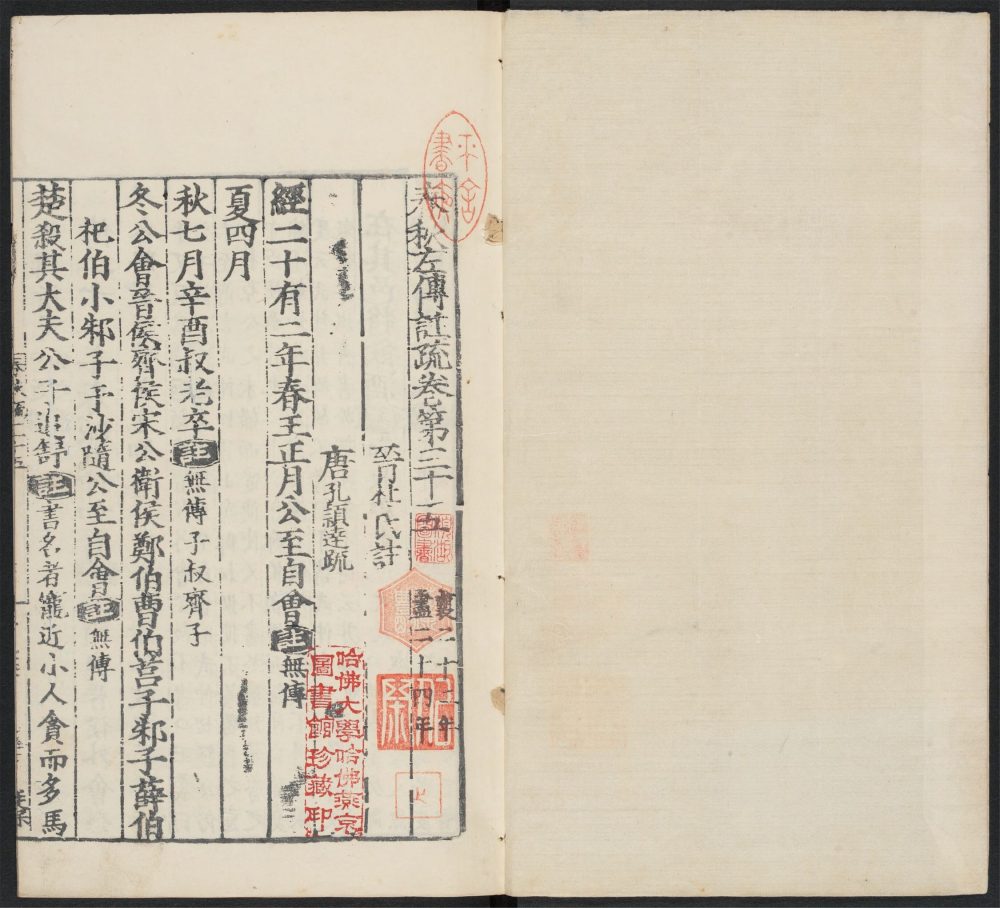 春秋左傳註疏卷第三十五
襄二十二年
盡二十四年
晉杜氏註
唐孔穎達疏
經二十有二年春王正月公至自會註無傳
夏四月
秋七月辛酉叔老卒註無傳子叔齊子
冬公會晉侯齊侯宋公衛侯鄭伯曹伯莒子邾子薛伯
杞伯小邾子于沙隨公至自會註無傳
楚殺其大夫公子追舒註書名者寵近小人貪而多馬
哈佛大學哈佛燕京
圖書館珍藏印